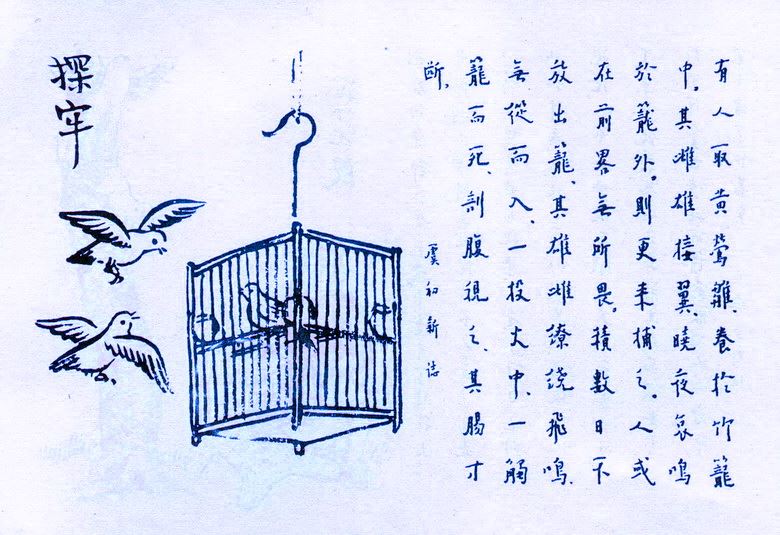 有人取黄鶯雛、養於竹籠
中。其雌雄接翼、曉夜哀鳴
於籠外。則更来捕之。人或
在前畧無所畏。積數日不
放出籠、其雄雌繚繞飛鳴、
無從而入、一投火中、一觸
籠而死、剖腹視之、其腸寸
斷。
虞初新誌
探牢